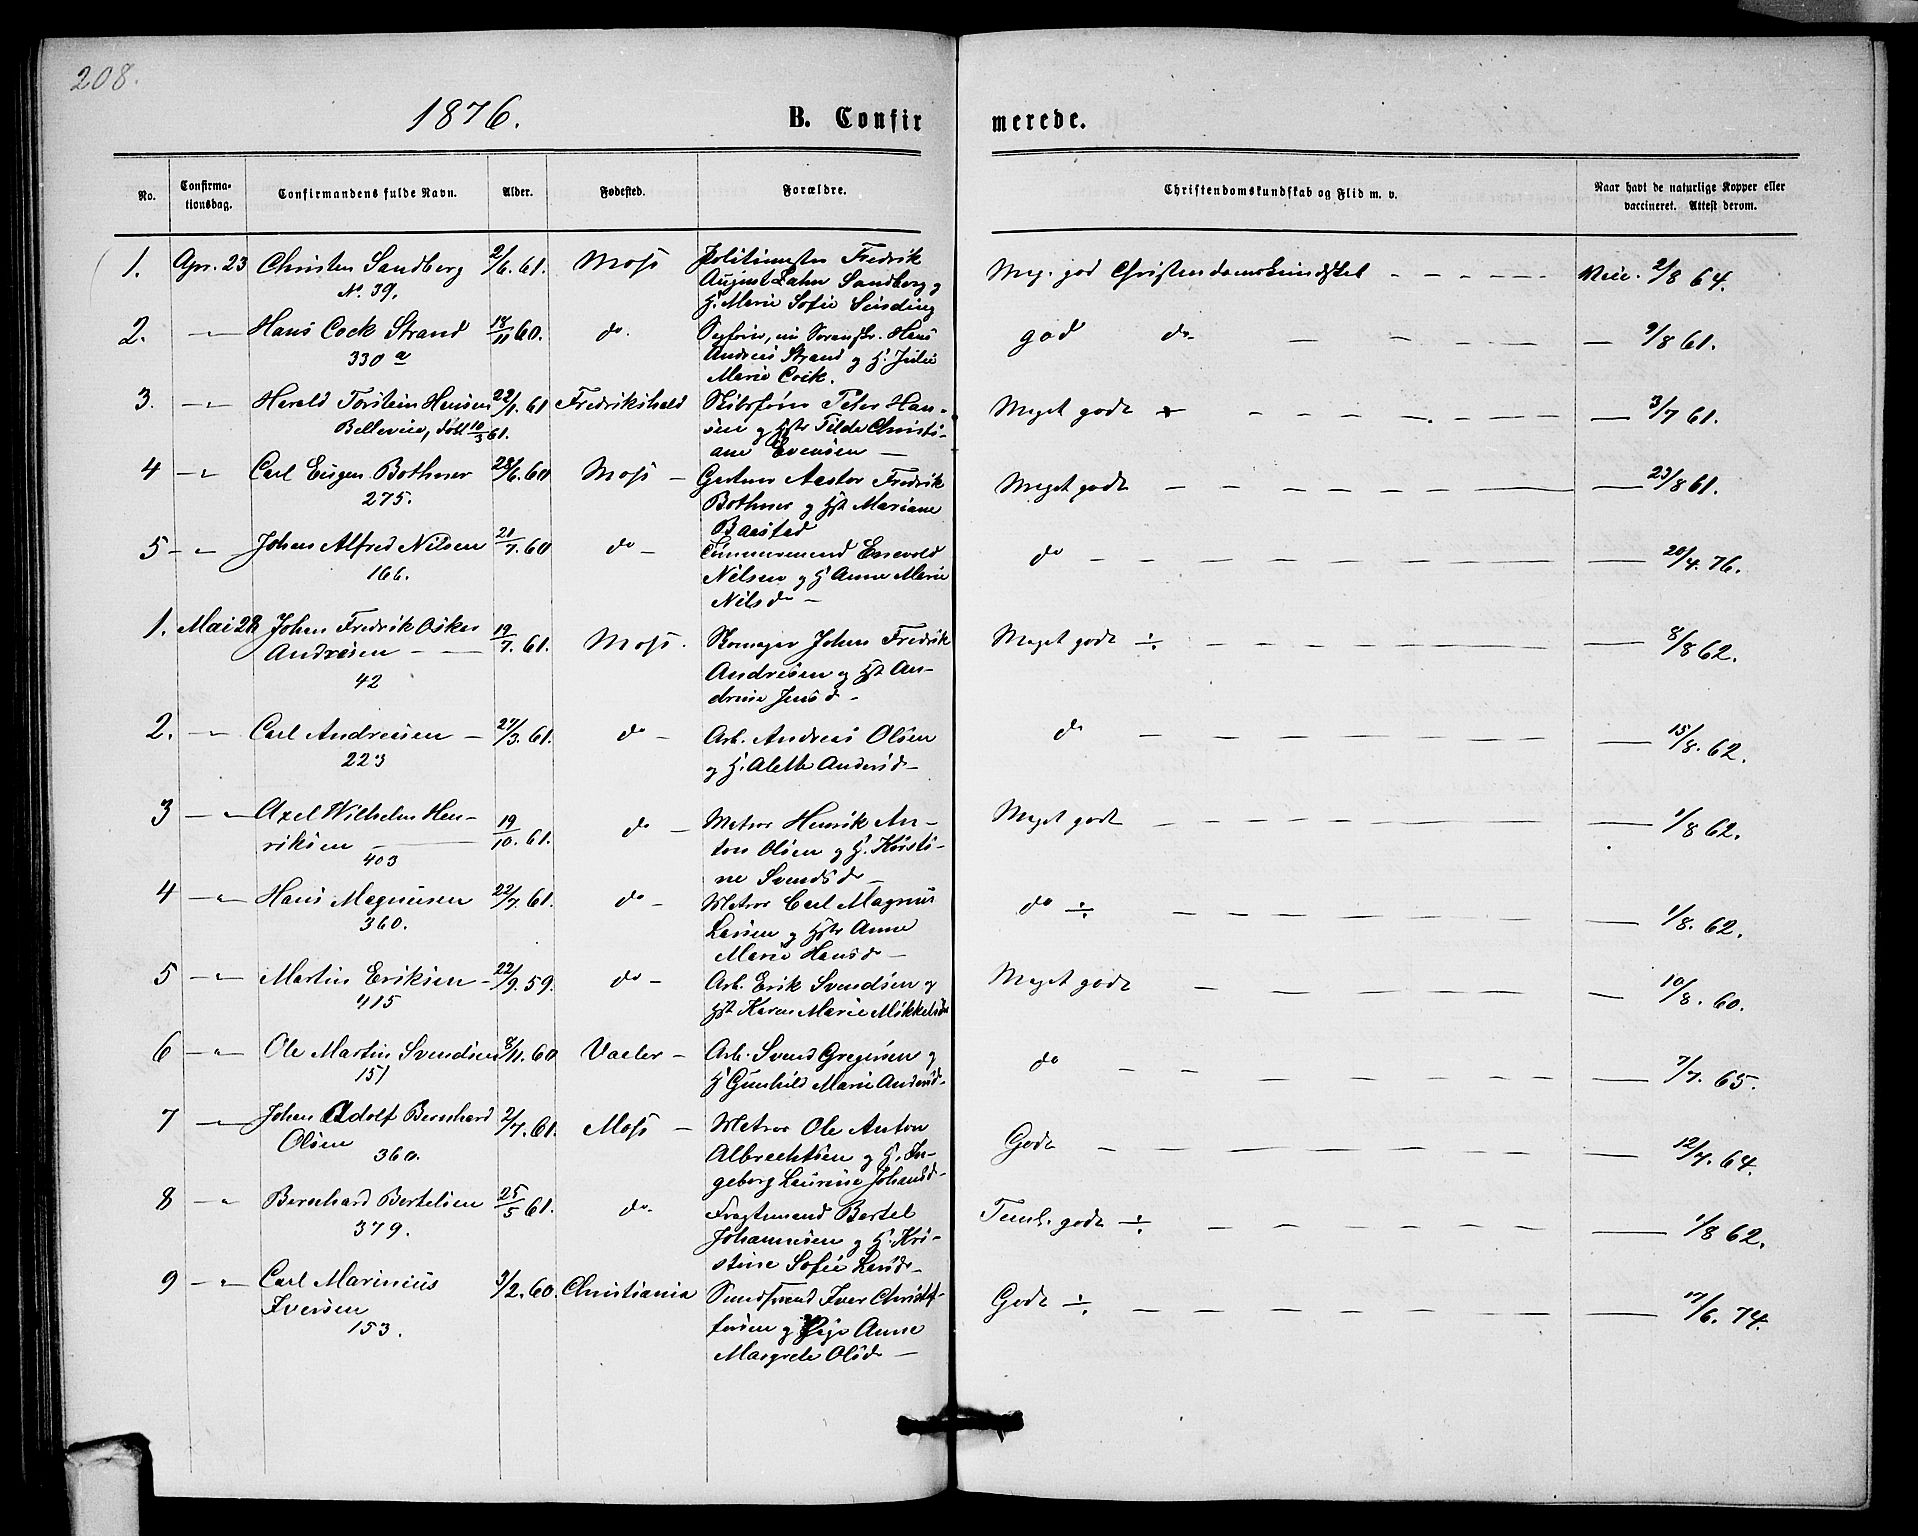 208.
1876. B. Confir merede.
No. Confirma- tionsdag. Confirmandens fulde Navn. Alder. Fødested. Forældre. Christendomskundskab og Flid m. v. Naar havt de naturlige Kopper eller vaccineret. Attest derom.
1. Apr. 23 Christen Sandberg 2/6. 61. Moss Politimester Fredrik Meg. god Christendomskundskab - - - - - Vacc. 2/8 64.
No. 39. August Zahn Sandberg og
H. Marie Sofie Sinding
2. -"- Hans Cock Strand 18/11 60. do. Hans god do - - - - 9/8 61.
330 a Andreas Strand og H. Julie
Marie Cock.
3. -"- Harald Torstein Hansen 22/1. 61 Fredrikshald Skibsfører Peter Han- Meget godt - - - - 3/7 61.
Bellevue, døbt 10/3 61. sen og Hstr Tilda Christi-
ane Evensen -
4 -"- Carl Eugen Bothner 28/6. 60 Moss - Gartner Fredrik Meget godt - - - - 23/8 61.
275. Bothner og Hst Mariane
Baastad
5 -"- Johan Alfred Nilsen 21/7. 60 do - Tømmermand Enevold do - - - - 20/4. 76.
166. Nilsen og H Anne Marie
Nilsd. -
1. Mai 28 Johan Fredrik Oskar 19/7. 61. Moss. Skomager Johan Fredrik Meget godt ÷ - - - - 8/8 62.
Andresen - - Andresen og Hst An-
42 drine Jensd -
2. -"- Carl Andreasen - 27/3. 61. do - Arb. Andreas Olsen do - - - - 15/8. 62.
223 og H. Alethe Andersd -
3 -"- Axel Wilhelm Hen- 19/10. 61. do - Matros Henrik An- Meget godt - - - - 1/8 62.
riksen - ton Olsen og H. Kristi-
403 ne Svendsd -
4 -"- Hans Magnusen 22/7. 61. do - Matros Carl Magnus do ÷ - - - - 1/8. 62.
360. Larsen og Hstr Anne
Marie Hansd -
5 -"- Martin Eriksen - 22/9. 59. do - Arb. Erik Svendsen og Meget godt - - - - 10/8. 60.
415 Hst Karen Marie Mikkelsd
6 -"- Ole Martin Svendsen 8/11. 60 Vaaler - Arb. Svend Gregersen og do - - - - 7/7. 65.
151 H Gunhild Marie Andersd -
7 -"- Johan Adolf Bernhard 2/7. 61. Moss - Matros Ole Anton Godt - - - - 12/7. 64.
Olsen Albrechtsen og H. In-
360. geborg Laurine Johansd -
8 -"- Bernhard Bertelsen 25/5 61. do. Fragtmand Bertel Teml. godt ÷ - - - - 1/8 62.
379. Johannesen og H. Kri-
stine Sofie Larsd -
9 -"- Carl Marinius 3/2. 60. Christiania Sundmand Iver Christof- Godt ÷ - - - - 17/6. 74.
Iversen fersen og Pige Anne
153. Margrete Olsd -